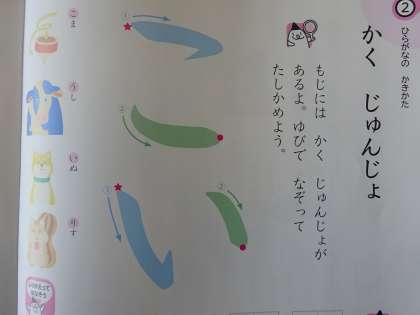 ②
ひらがなの かきかた
かく じゅんじょ
もじには かく じゅんじょが
あるよ。ゆびで なぞって
たしかめよう。
①
②
①
②
こま
うし
いぬ
りす